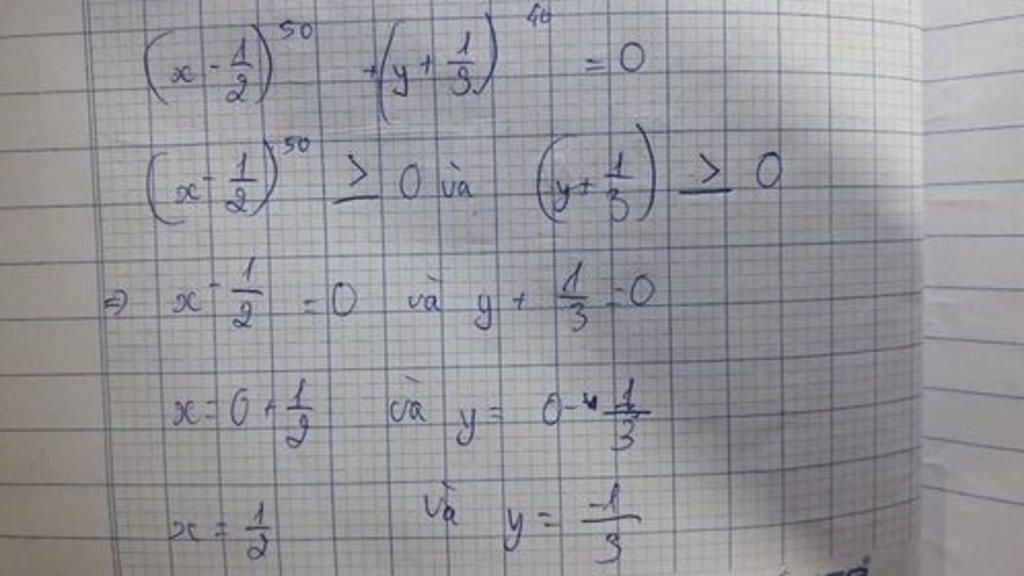 (x - 1/2)^50 + (y + 1/3)^40 = 0
(x - 1/2)^50 ≥ 0 và (y + 1/3) ≥ 0
⇒ x - 1/2 = 0 và y + 1/3 = 0
x = 0 + 1/2 và y = 0 - 1/3
x = 1/2 và y = -1/3